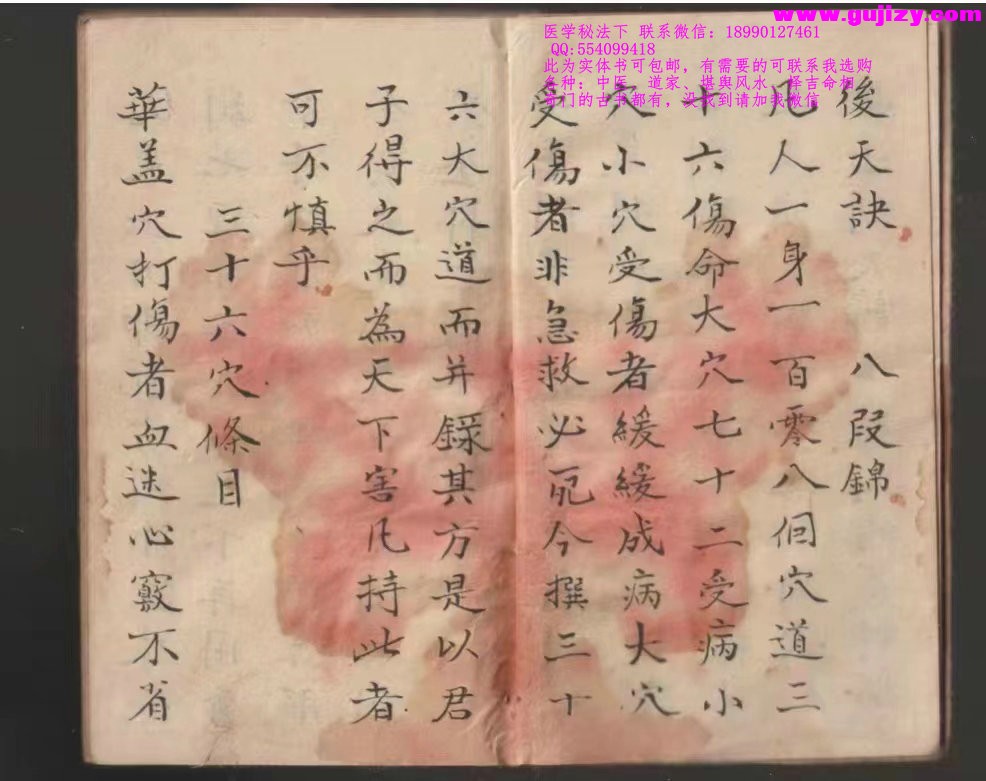 www.gujizy.com
医学秘法下 联系微信：18990127461
QQ:554099418
此为实体书可包邮，有需要的可联系我选购
各种：中医、道家、堪舆风水、择吉命相
奇门的古书都有，没找到请加我微信
後天訣 八段錦
凡人一身一百零八個穴道三
十六傷命大穴七十二受病小
穴小穴受傷者緩緩成病大穴
受傷者非急救必死今撰三十
六大穴道而并錄其方是以君
子得之而為天下害凡持此者
可不慎乎
三十六穴條目
華盖穴打傷者血迷心竅不省